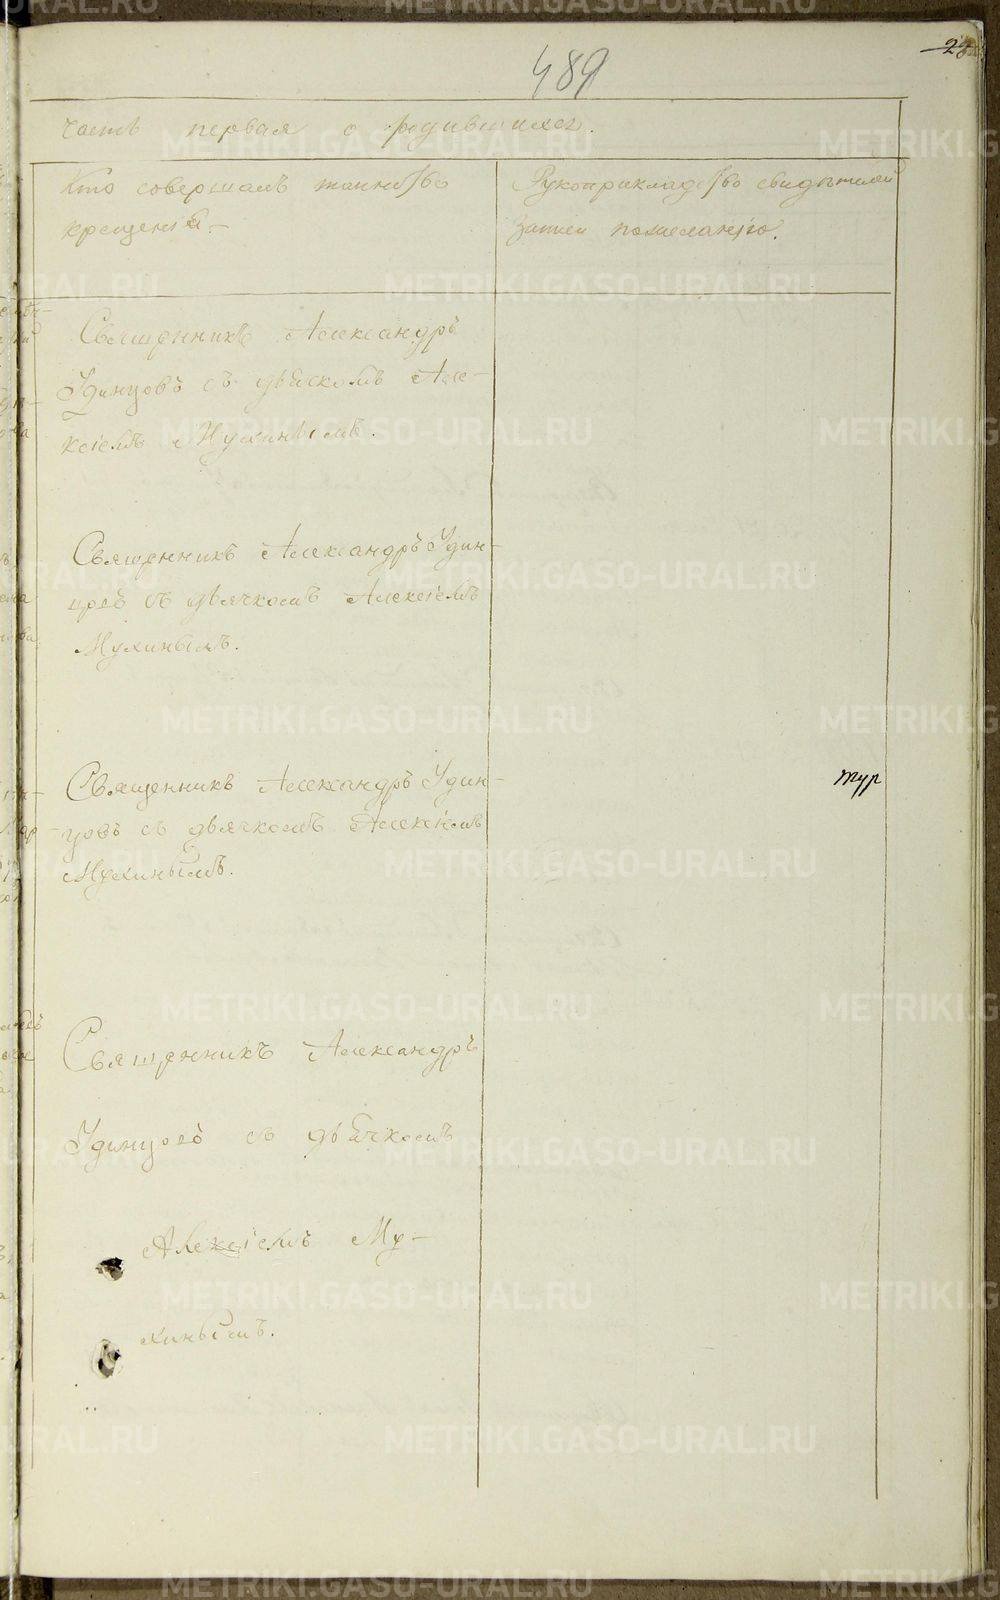 489
часть первая о родившихся.
Кто совершалъ таинство
крещенія.
Рукоприкладство свидѣтелей
записи по желанію.
Священникъ Александръ
Удинцовъ съ дьячкомъ Але-
ксіемъ Мухинымъ.
Священникъ Александръ Удин-
цовъ съ дьячкомъ Алексіемъ
Мухинымъ.
Священникъ Александръ Удин-
цовъ съ дьячкомъ Алексіемъ
Мухинымъ.
тур
Священникъ Александръ
Удинцовъ съ дьячкомъ
Алексіемъ Му-
хинымъ.
METRIKI.GASO-URAL.RU